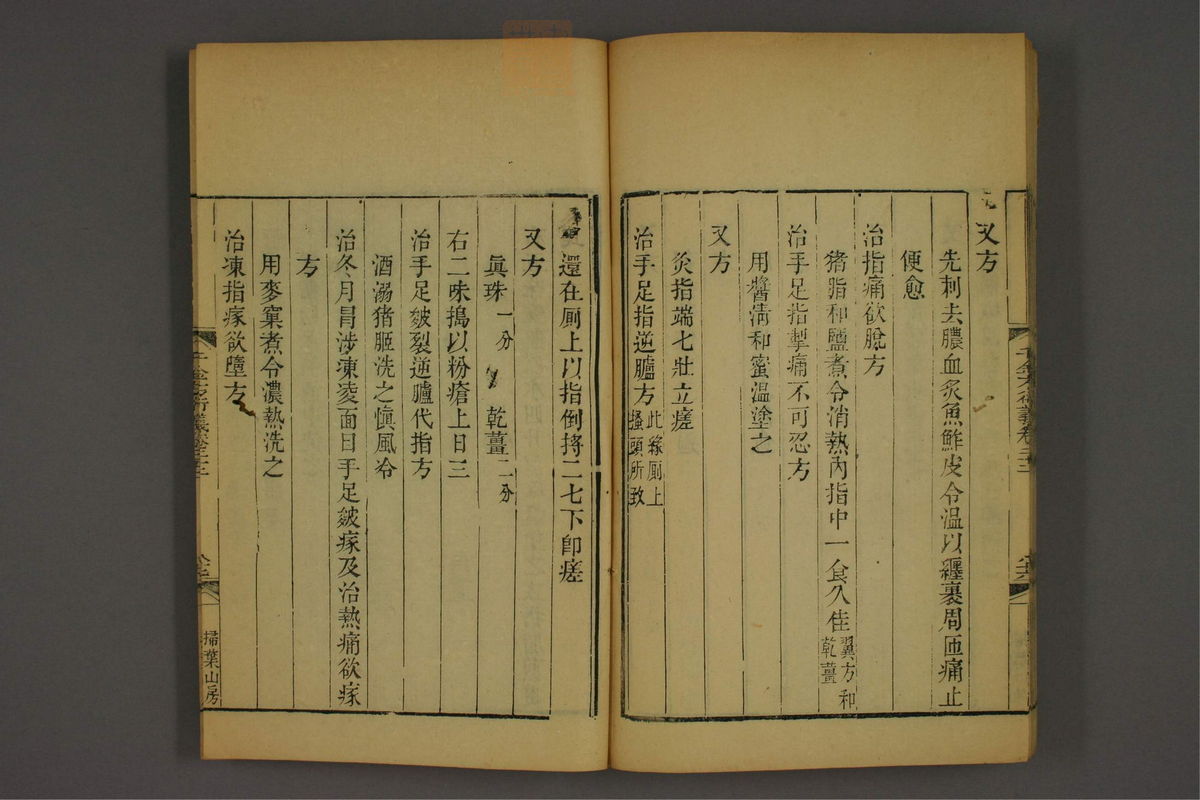 又方
先刺去膿血炙魚鮓皮令溫以纏裹周匝痛止
便愈
治指痛欲脫方
猪脂和鹽煮令消熱內指中一食久佳翼方和乾薑
治手足指掣痛不可忍方
用醬清和蜜溫塗之
又方
灸指端七壯立瘥
治手足指逆臚方此緣厠上搔頭所致
還在厠上以指倒捋二七下卽瘥
又方
眞珠一分　乾薑二分
右二味搗以粉瘡上日三
治手足皴裂逆臚代指方
酒溺猪胆洗之愼風冷
治冬月冐涉凍凌面目手足皴瘃及治熱痛欲瘃
方
用麥窠煮令濃熱洗之
治凍指瘃欲墮方
千金方衍義卷二十二
掃葉山房